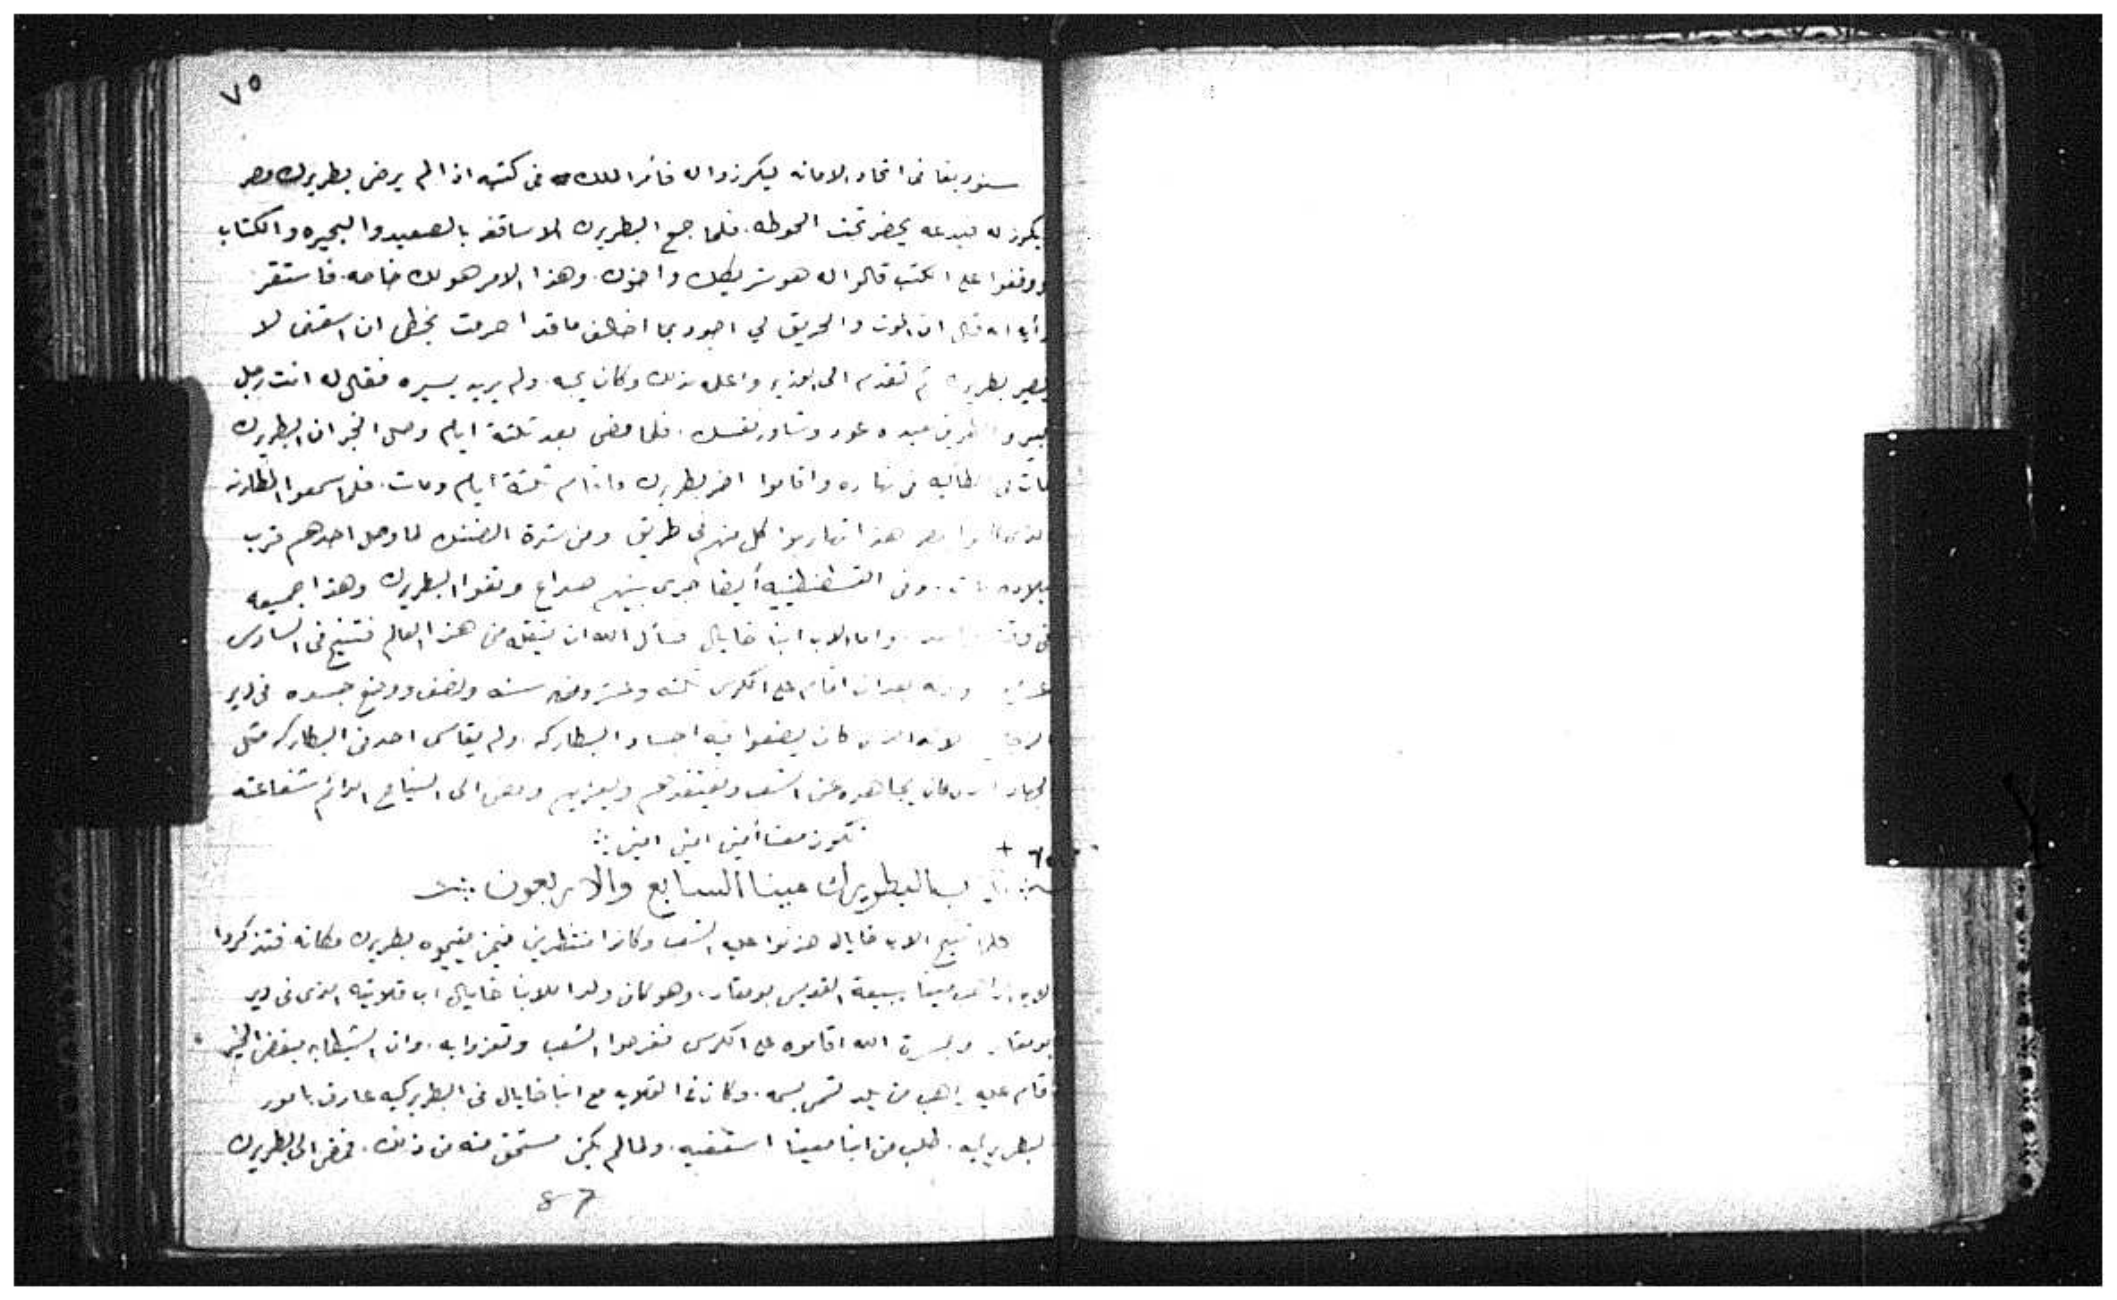 ٧٥
سنوديقا فى اتحاد الامانه ليكرزوا له فأمر الملك فى كتبه اذا لم يرض بطريرك مصر
يكرز له فيدعه يحضر تحت الحوطه. فلما جمع البطريرك الاساقفه بالصعيد والبحيره والكتاب
ووقفوا على الكتب قالوا له هو شريكك واخوك. وهذا الامر هو لك خاصه. فاستقر
رأيه انه قال ان الموت والحريق لي اجود مما اخالف ما قد احرمت بخطى ان اسقف لا
يصير بطريرك ثم تقدم الى الوزير واعلمه بذلك وكان يحبه. ولم يريد يسيره فقال له انت رجل
كبير والطريق بعيده عود وشاور نفسك. فلما مضى بعد ثلثة ايام وصل الخبر ان البطريرك
مات فى انطاكيه فى نهاره واقاموا اخر بطريرك واقام ثلثة ايام ومات. فلما سمعوا المطارنه
الذى كانوا مصر هذا تهاربوا كل منهم فى طريق ومن شدة الضنك لما وصل احدهم قرب
بلاده مات. وفى القسطنطينيه أيضا جرى بينهم صداع ونفوا البطريرك وهذا جميعه
فى وقت واحد. واما الاب انبا خايال فسأل الله ان ينقله من هذا العالم فتنيح فى السادس
بعد ان اقام على الكرسى ثلثه وعشرون سنه ونصف ووضع جسده فى دير
لانه الذى كان يضعوا فيه اجساد البطاركه. ولم يقاسى احد فى البطاركه مثل
الجهاد الذى كان يجاهده عن الشعب ويفتقدهم ويعزيهم ومضى الى النياح الدائم شفاعته
تكون معنا أمين امين امين
+
البطريرك مينا السابع والاربعون
ولما تنيح الاب خايال حزنوا عليه الشعب وكانوا منتظرين فيمن يقيموه بطريرك مكانه فتذكروا
الاب الراهب مينا ببيعة القديس بومقار. وهو كان ولدا للانبا خايال اب قلايته الذى فى دير
بومقار وبمسرة الله اقاموه على الكرسى ففرحوا الشعب وتعزوا به. وان الشيطان يبغض الخير
قام عليه راهب من بلد تسمى بسمه. وكان فى القلايه مع انبا خايال فى البطريركيه عارف بامور
البطريركيه. طلب من انبا مينا اسقفيه. ولما لم يكن مستحق منعه من ذلك. فمضى الى البطريرك
87